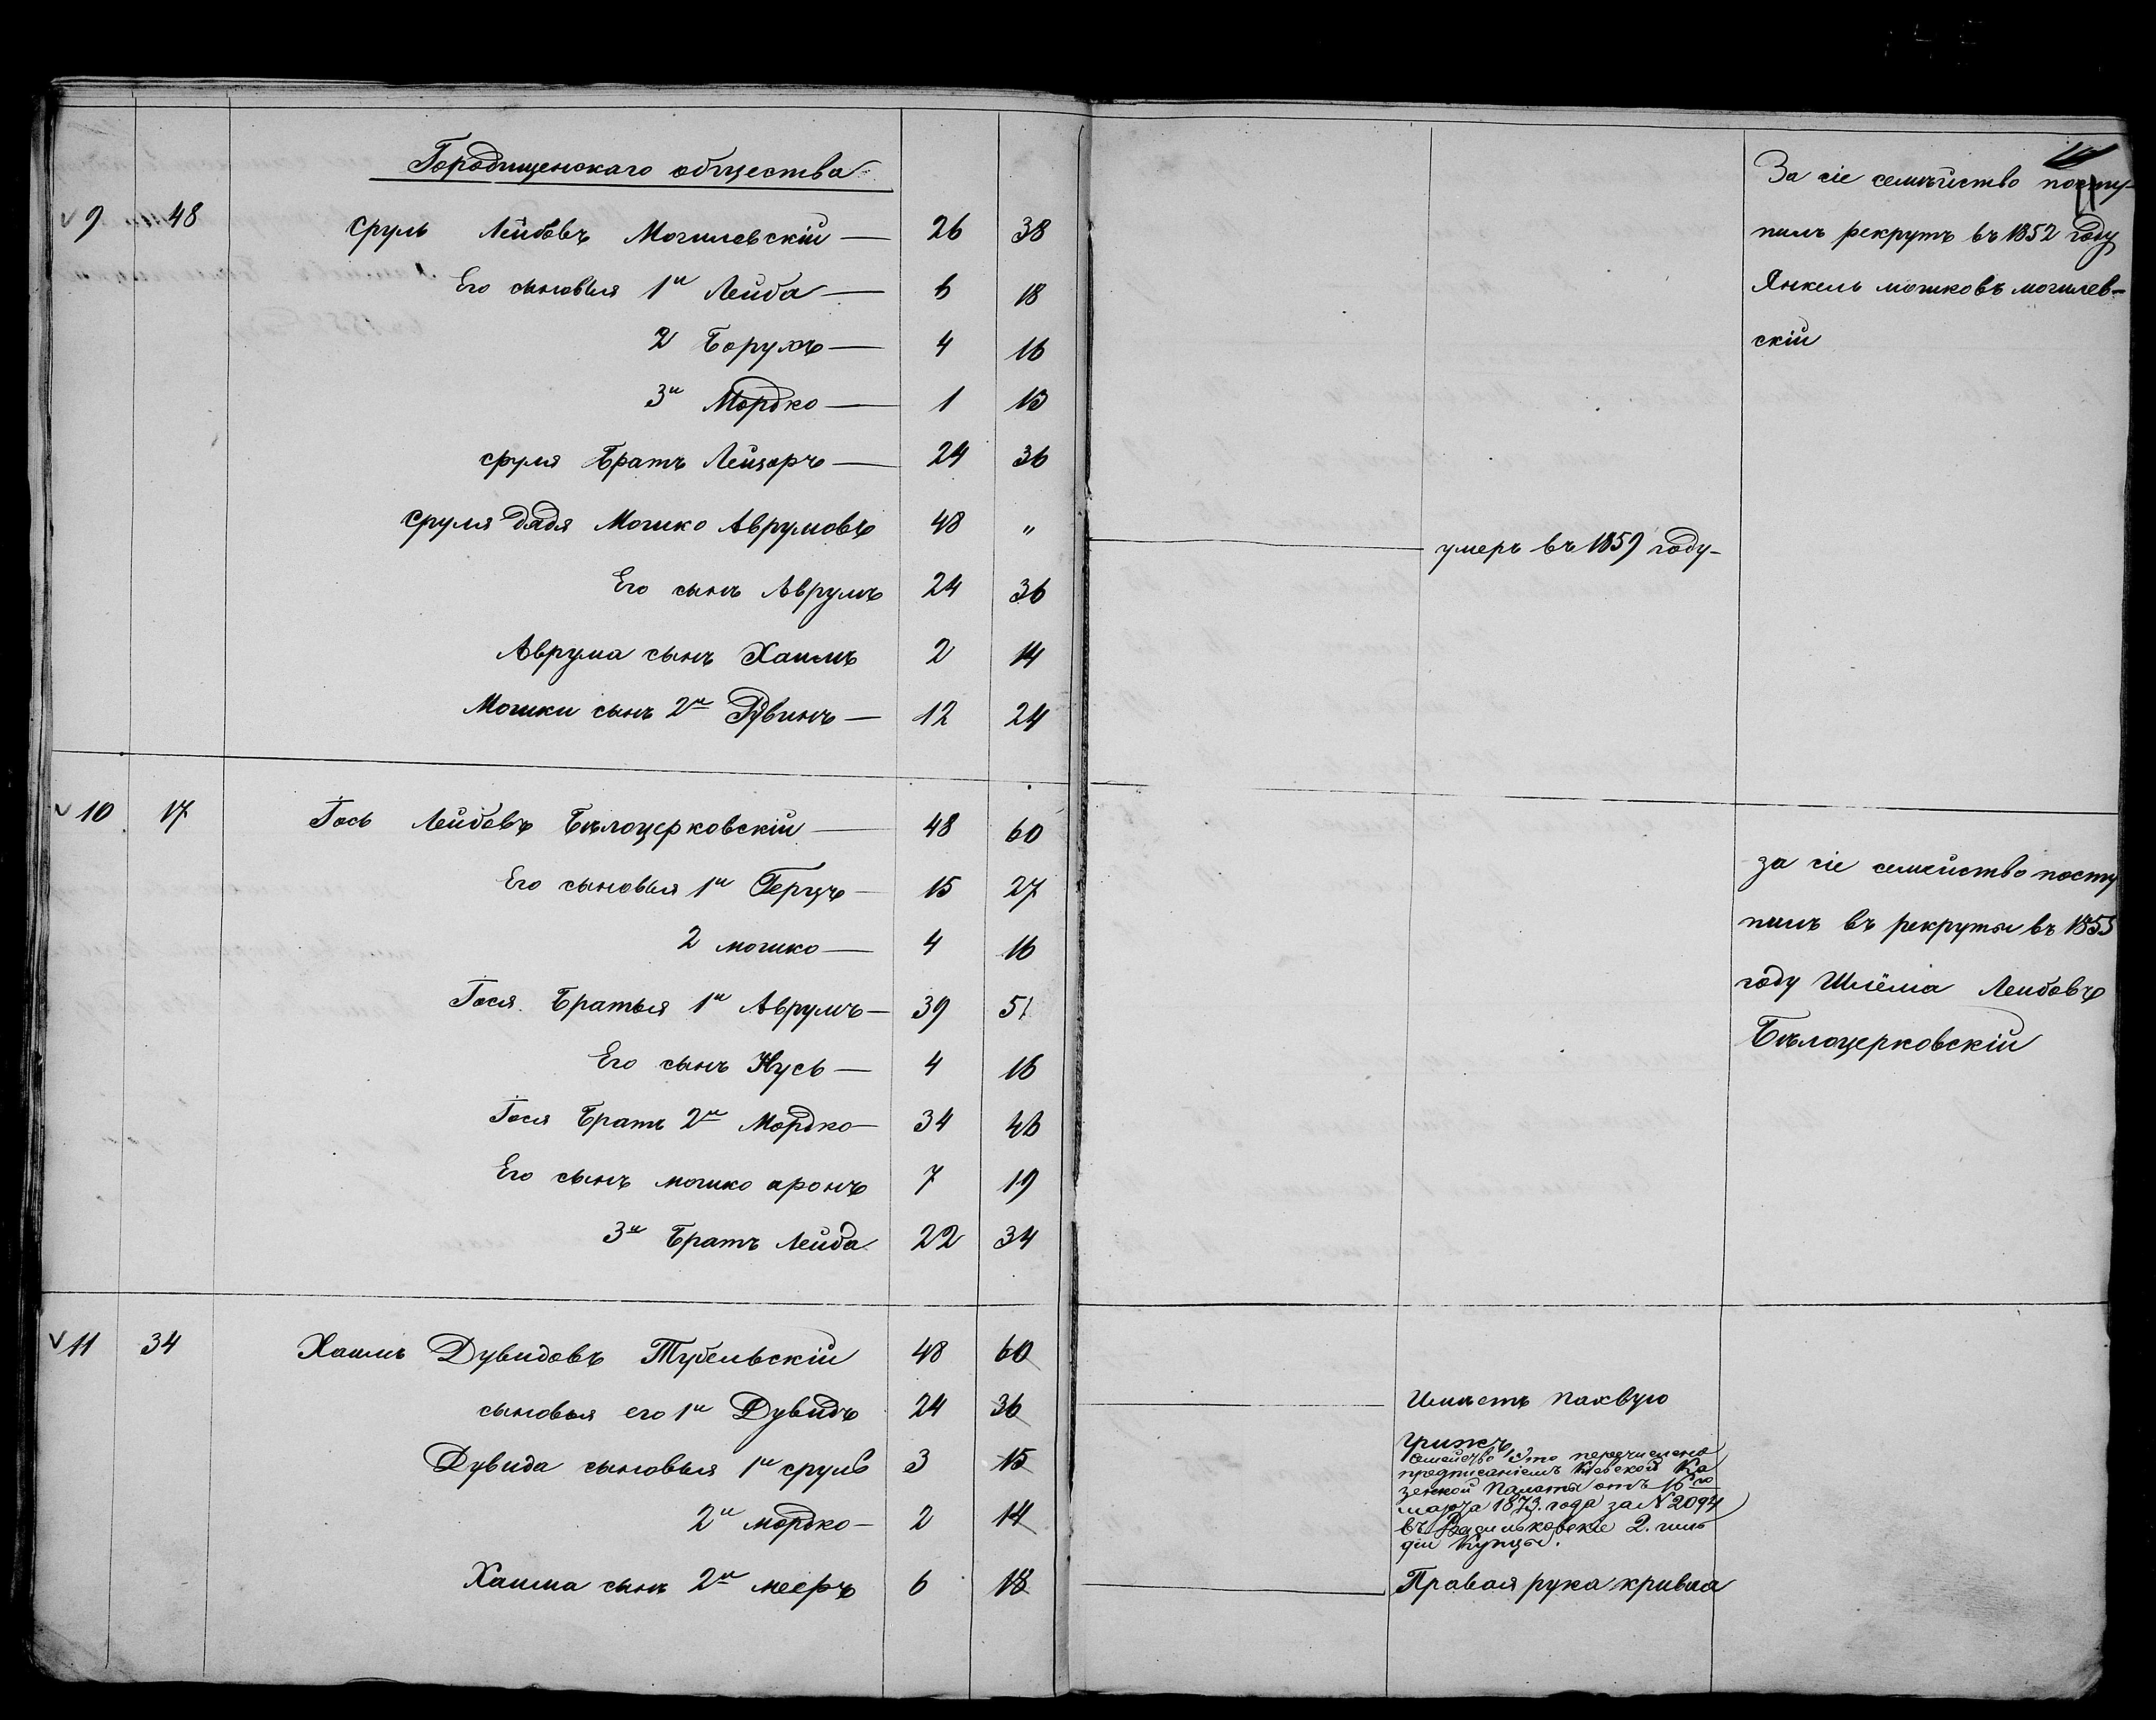 Городищенскаго общества
9 48 Сруль Лейбовъ Могилевскій — 26 38
Его сыновья 1й Лейба — 6 18
2 Борухъ — 4 16
3й Мордко — 1 13
Сруля Братъ Лейзоръ — 24 36
Сруля дядя Мошко Аврумовъ 48 „
умеръ въ 1859 году
Его сынъ Аврумъ 24 36
Аврума сынъ Хаимъ 2 14
Мошки сынъ 2й Рувинъ — 12 24
За сіе семѣйство посту-
пилъ рекрутъ въ 1852 году
Янкель мошковъ могилев-
скій
10 17 Гось Лейбовъ Бѣлоцерковскій — 48 60
Его сыновья 1й Герцъ — 15 27
2 мошко — 4 16
Гося Братья 1й Аврумъ — 39 51
Его сынъ Нусь — 4 16
Гося Братъ 2й Мордко — 34 46
Его сынъ мошко аронъ 7 19
3й Братъ Лейба 22 34
за сіе семейство посту
пилъ въ рекруты въ 1855
году Шлёма Лейбовъ
Бѣлоцерковскій
11 34 Хаимъ Дувидовъ Тубельскій 48 60
сыновья его 1й Дувидъ 24 36
Дувида сыновья 1й сруль 3 15
2й мордко — 2 14
Хаима сынъ 2й мееръ 6 18
Имѣетъ паховую
грыжъ
Семейство Это перечислено
предписаніемъ Кіевской Ка
зенной Палаты отъ 16го
марта 1873 года за № 2094
въ Васильковскіе 2. гиль
діи Купцы.
Правая рука крива